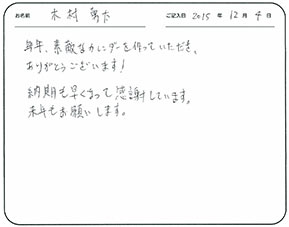 お名前 木村 勇太 ご記入日 2015 年 12 月 4 日
毎年、素敵なカレンダーを作っていただき、
ありがとうございます!
納期も早くまって感謝しています。
来年もお願いします。